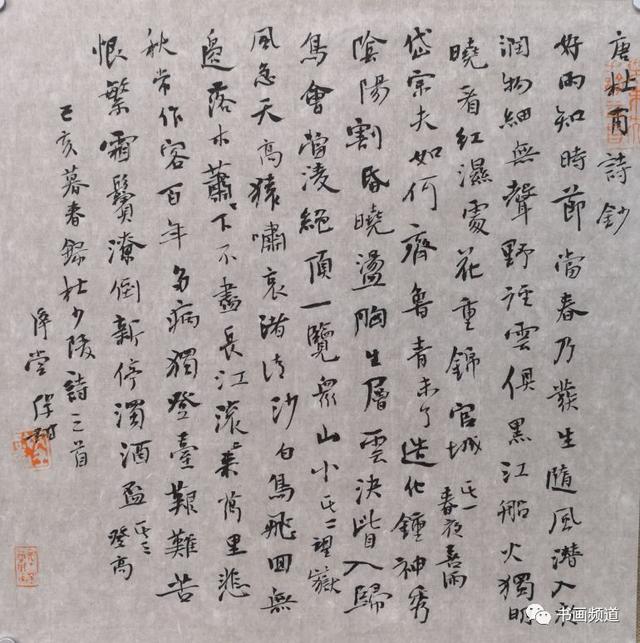 唐杜甫詩鈔
好雨知時節當春乃發生隨風潛入夜
潤物細無聲野徑雲俱黑江船火獨明
曉看紅濕處花重錦官城其一春夜喜雨
岱宗夫如何齊魯青未了造化鍾神秀
陰陽割昏曉盪胸生層雲決眥入歸
鳥會當凌絕頂一覽衆山小其二望嶽
風急天高猿嘯哀渚清沙白鳥飛回無
邊落木蕭〻下不盡長江滚〻來萬里悲
秋常作客百年多病獨登臺艱難苦
恨繁霜鬢潦倒新停濁酒盃其三登高
己亥暮春錄杜少陵詩三首
书画频道